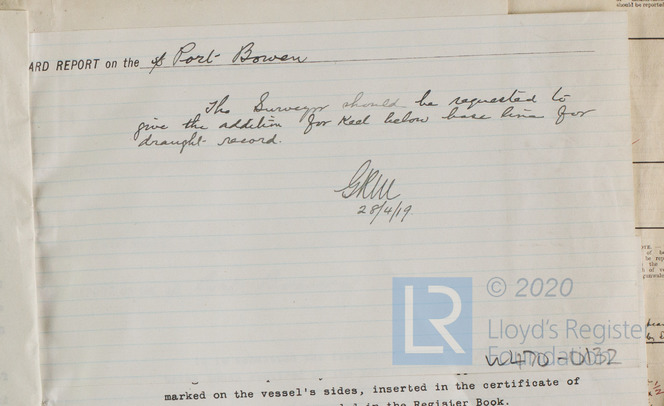 ARD REPORT on the S/S Port Bowen
The Surveyor should be requested to
give the addition for keel below base line for
draught record.
GRM
28/4/19.
© 2020
LR
Lloyd's Register
Foundation
W470-0132
marked on the vessel's sides, inserted in the certificate of
in the Register Book.
should be reported